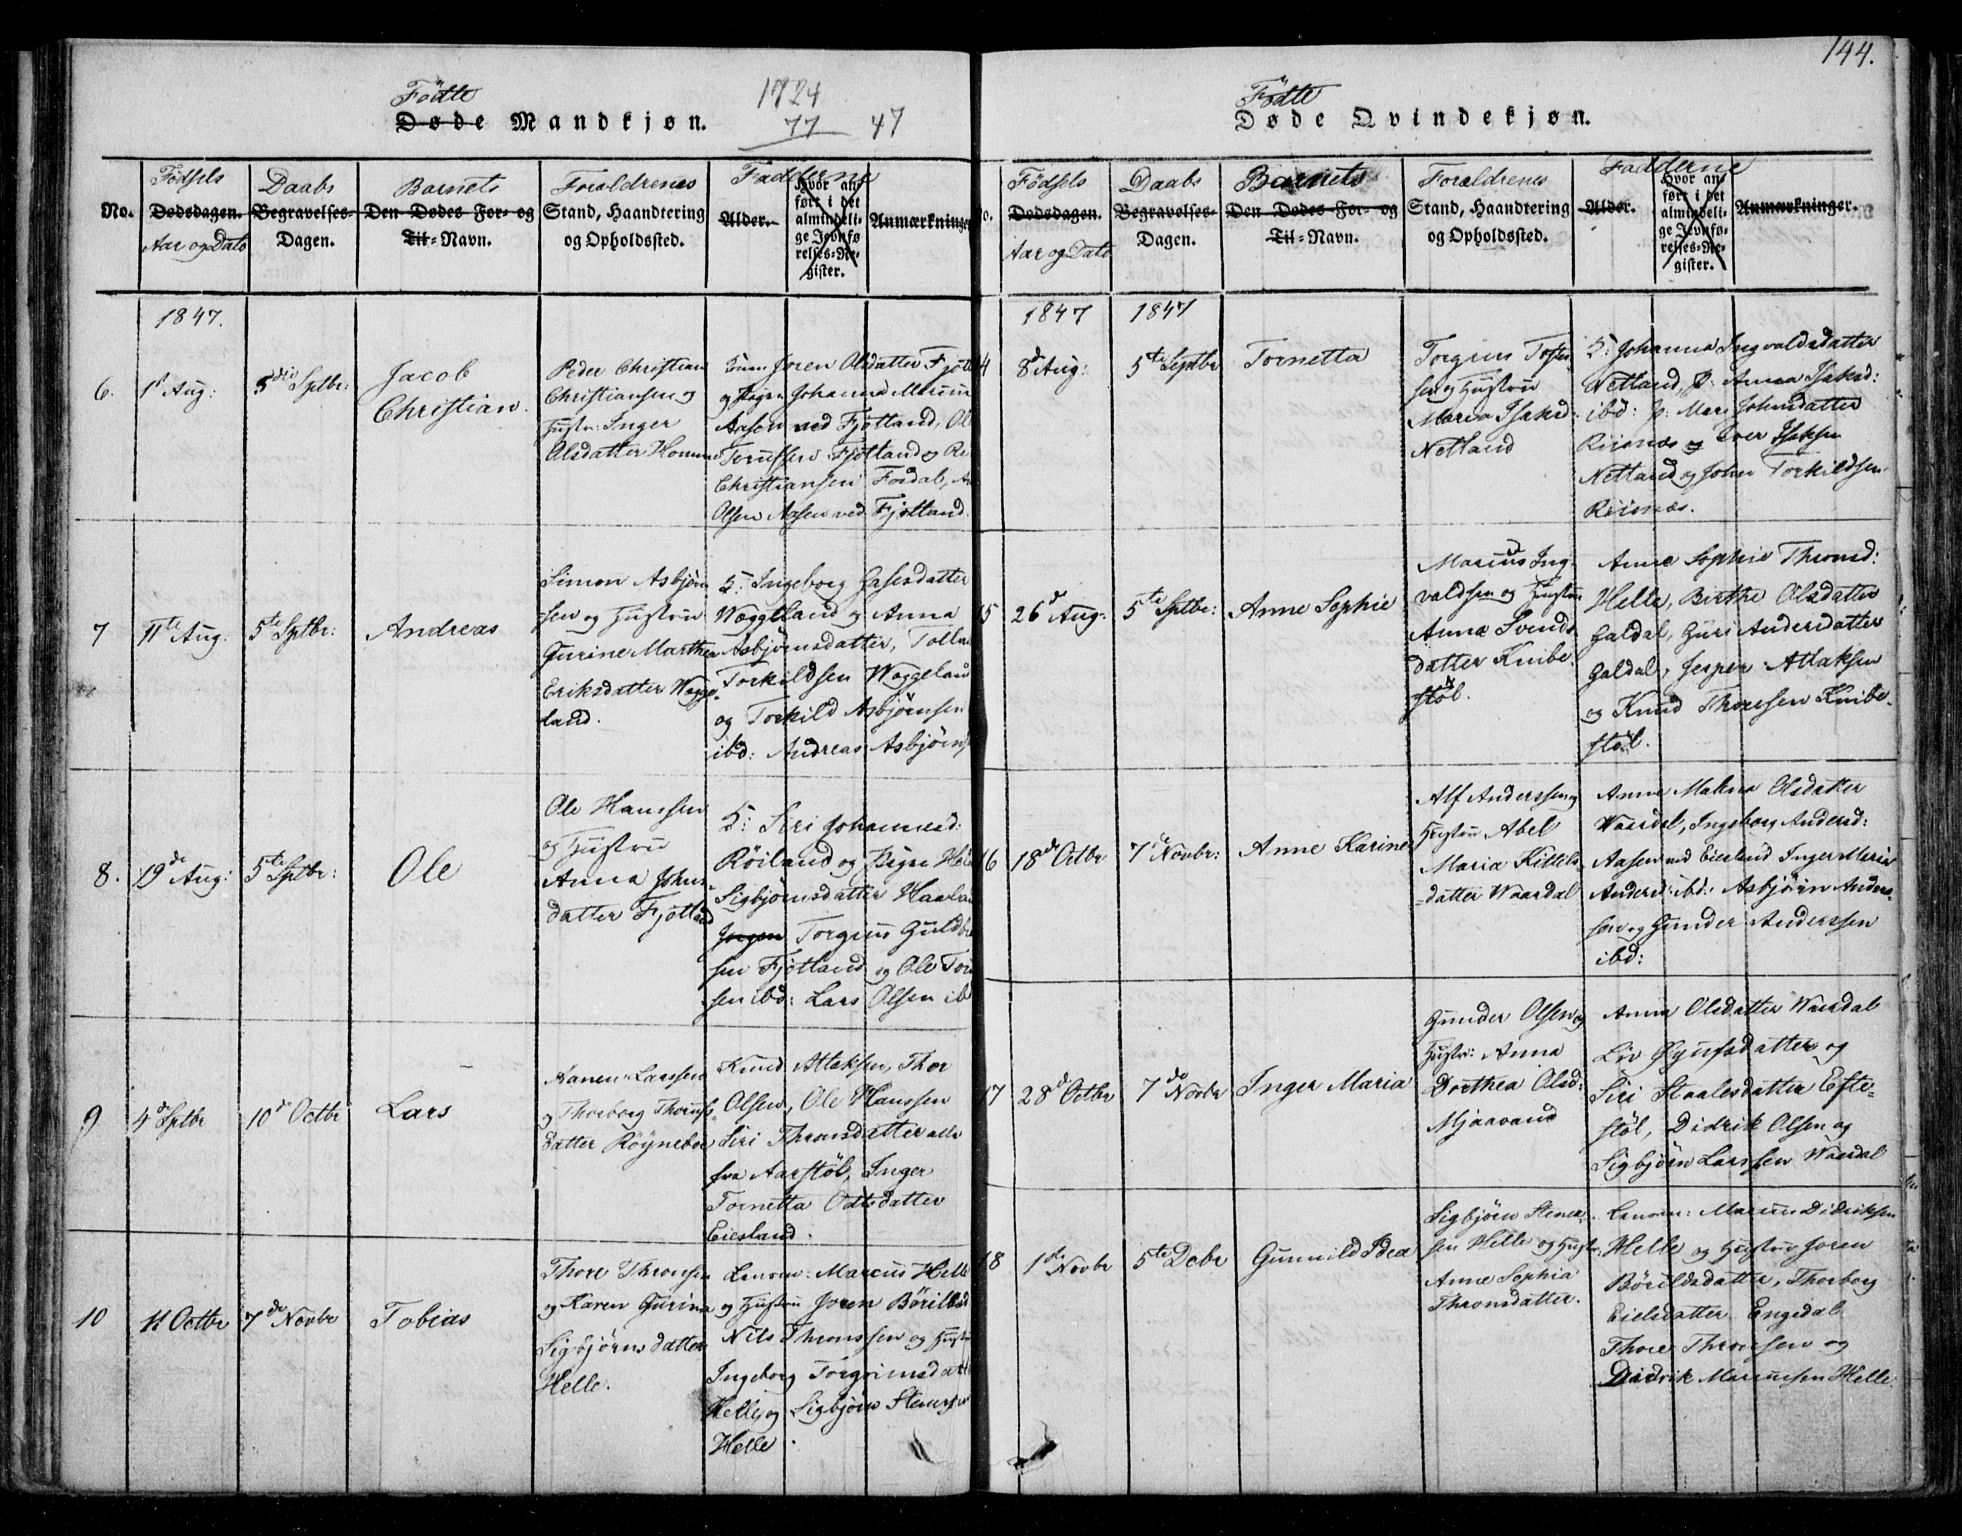 144.
Födte
Døde Mandkjøn.
1824
77 47
No.
Födsels
Dødsdagen.
Aar og Dato
Daabs
Begravelses-
Dagen.
Barnets
Den Dødes For- og
Til-Navn.
Forældrenes
Stand, Haandtering
og Opholdssted.
Fadderne
Alder.
Hvor an-
ført i det
almindeli-
ge Jevnfø-
relses-Re-
gister.
Anmærkninger
1847.
6.
1st Aug:
5die Sptbr:
Jacob
Christian.
Peder Christian
Christiansen og
Hustr: Inger
Olsdatter Homme
Joren Olsdatter Fjotl
og Johanna
Aasen ved Fjotland, Ol
Fjotland og
Christiansen Fosdal,
Olsen Aasen ved Fjotland.
7
11te Aug:
5te Sptbr:
Andreas
Simon Asbjörn
sen og Hustru
Gurine Marthea
Eriksdatter Wagge-
land.
5: Ingeborg
Waggeland og Anna
Asbjörnsdatter, Tolla
Torkildsen Waggelan
og Torkild Asbjörnsen
ibd: Andreas Asbjörns
8.
19de Aug:
5te Sptbr:
Ole
Ole Hanssen
og Hustru
Anna Johns-
datter Fjotland
5: Siri Johannesd:
Röiland og Signe
Sigbjörnsdatter Haalan
Jorgen Torgius Guldb
sen Fjotland og Ole Tor
sen ibd: Lars Olsen ib
9
4de Sptbr
10de Octbr
Lars
Hanen Larssen
og Thorborg
datter Röyneboe
Knud Atlaksen, Thor
Olsen, Ole Hanssen
Siri Thronsdatter alle
fra Aarstöl, Inger
Tornetta Oddsdatter
Eiesland.
10
11 Octbr
7de Novbr
Tobias
Thore Thronsen
og Karen Gurina
Sigbjörnsdatter
Helle.
Lensm: Marcus Helle
og Hustru Joren Börildsd
Nils Thronssen og Hustru
Ingeborg Torgrimsdatt
Helle, og Sigbjörn Stenersen
Helle.
Födte
Døde Qvindekjøn.
No.
Födsels
Dødsdagen.
Aar og Dato
Daabs
Begravelses-
Dagen.
Barnets
Den Dødes For- og
Til-Navn.
Forældrenes
Stand, Haandtering
og Opholdssted.
Fadderne
Alder.
Hvor an-
ført i det
almindeli-
ge Jevnfø-
relses-Re-
gister.
Anmærkninger.
1847
1847
4
8de Aug:
5te Septbr
Tornetta
Torgius Tostes
sen og Hustru
Maria Isaksd:
Netland
5: Johanna Ingvaldsdatter
Netland, p: Anna Isaksd:
ibd: p: Mari Johnsdatter
Risnæs og Iver Isaksen
Netland og John Torkildsen
Riisnæs.
5
26de Aug:
5te Sptbr:
Anne Sophie
Marius Ing-
valdsen og Hustru
Anna Svends
datter Knibe-
stöl.
Anne Sophie Thronsd:
Helle, Birthe Olsdatter
Galdal, Guri Andersdatter
Galdal, Jesper Atlaksen
og Knud Thorsen Knibe-
stöl.
16
18de Octbr
7de Novbr:
Anne Karine
Alf Anderssen og
Hustru Abel
Maria Kittils
datter Waardal
Anne Malena Olsdatter
Waardal, Ingeborg Andersd:
Aasen ved Eiesland Inger Maria
Andersd: ibd: Asbjörn Anders-
sen og Gunder Anderssen
ibd:
17
28de Octbr
7de Novbr
Inger Maria
Gunder Olsen og
Hustr: Anna
Dorthea Olsd:
Mjaavand
Anna Olsdatter Waardal
Liv Öyufsdatter og
Siri Staalesdatter Efte-
stöl, Didrik Olsen og
Sigbjörn Larssen Waardal
18
1ste Novbr
5te Decbr
Gunnild Idea
Sigbjörn Stener-
sen Helle og Hustr:
Anne Sophia
Thronsdatter.
Lensm: Marcus Didriksen
Helle og Hustru Joren
Börildsdatter, Thorborg
Eielsdatter Engedal
Thore Thronsen og
Didrik Marcussen Helle.